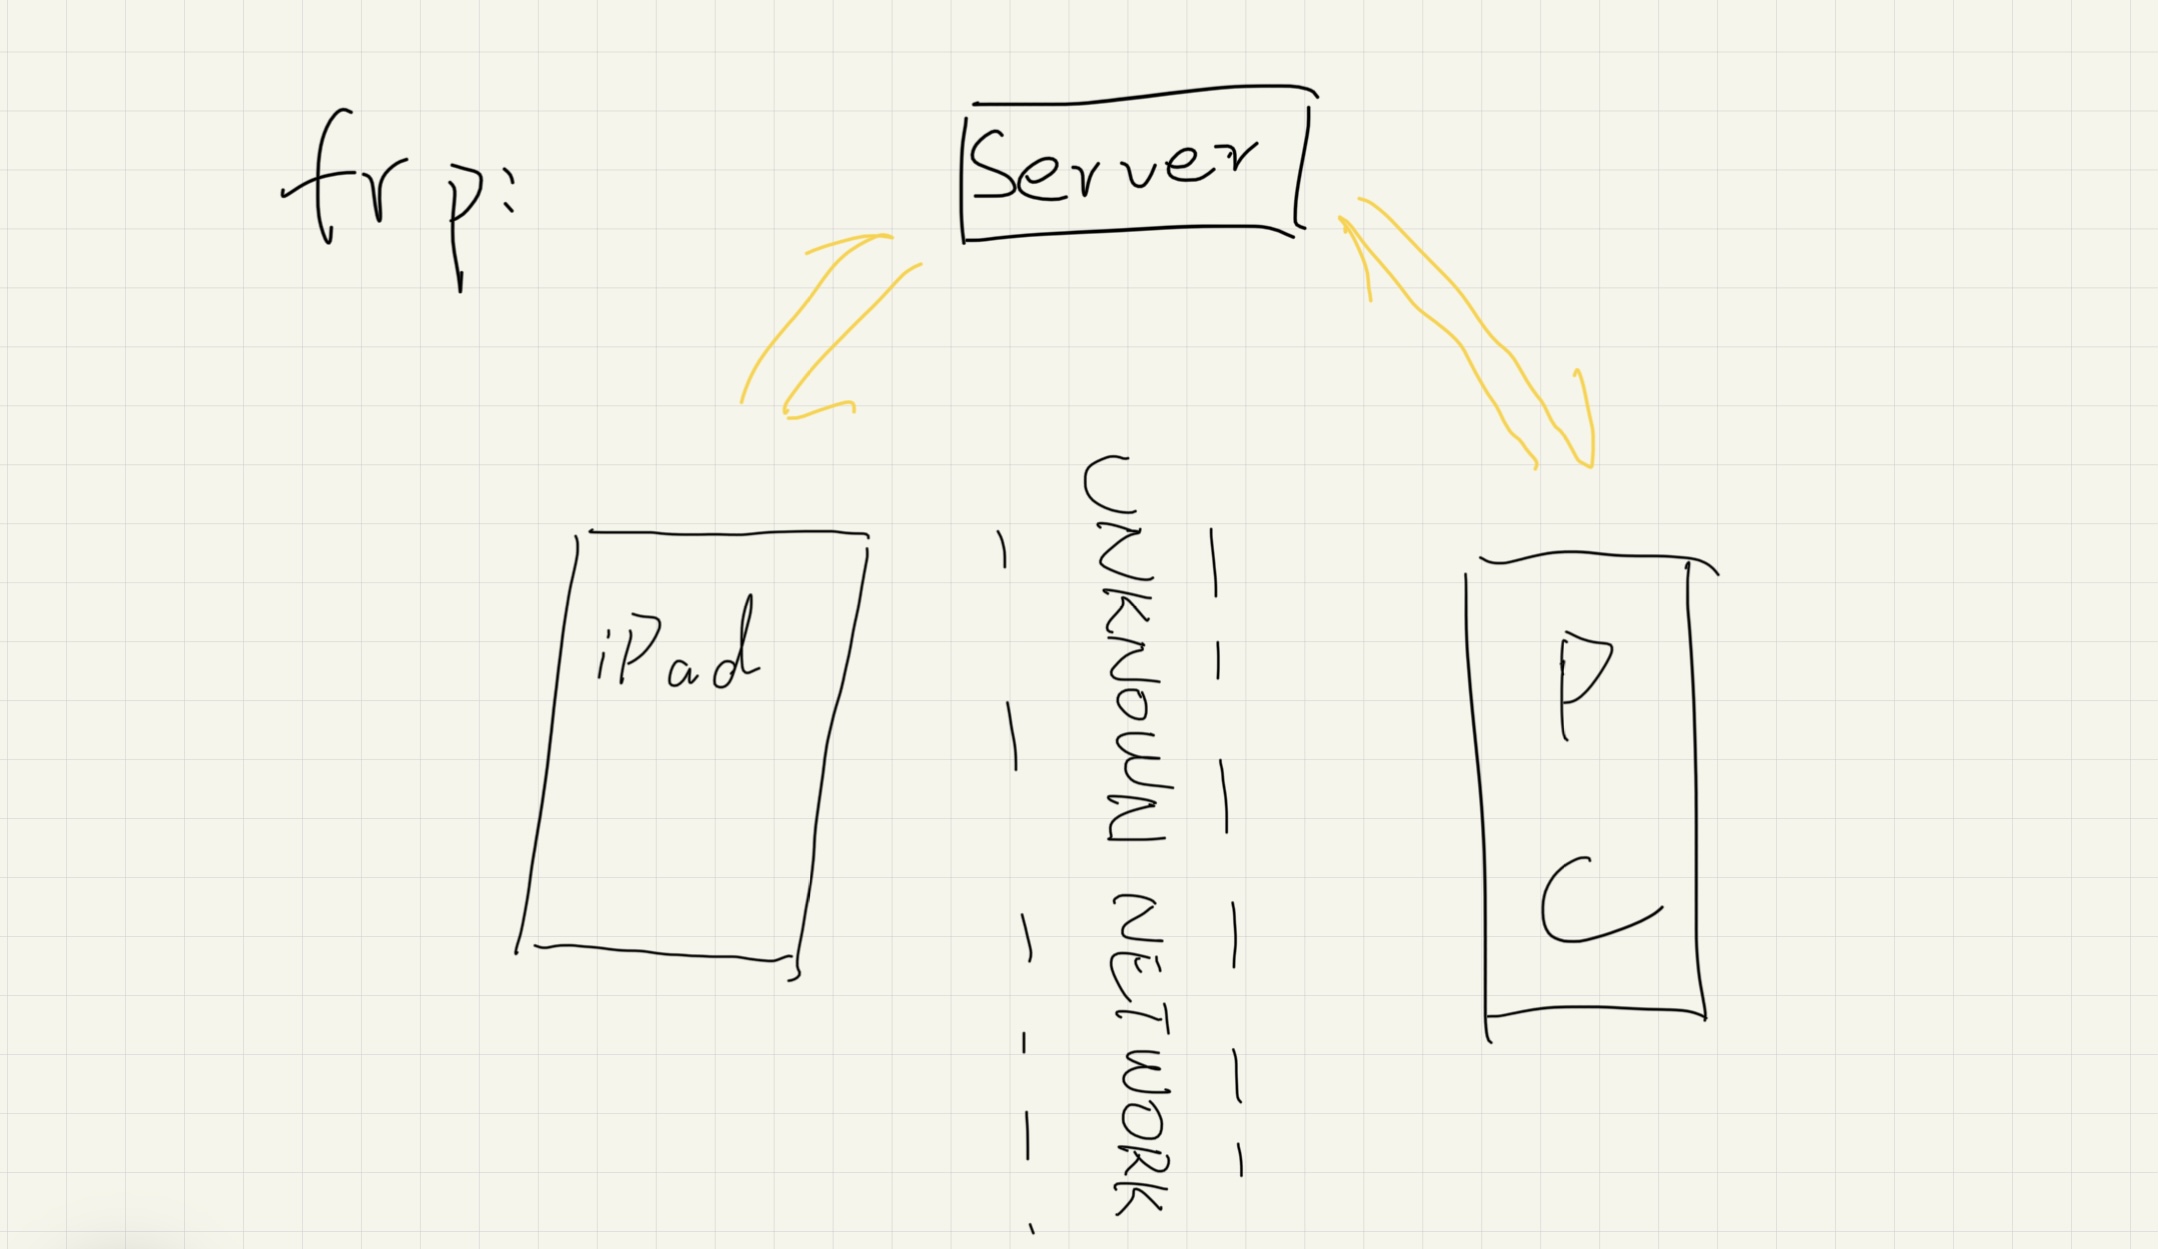 frp:
Server
iPad
UNKNOWN NETWORK
PC